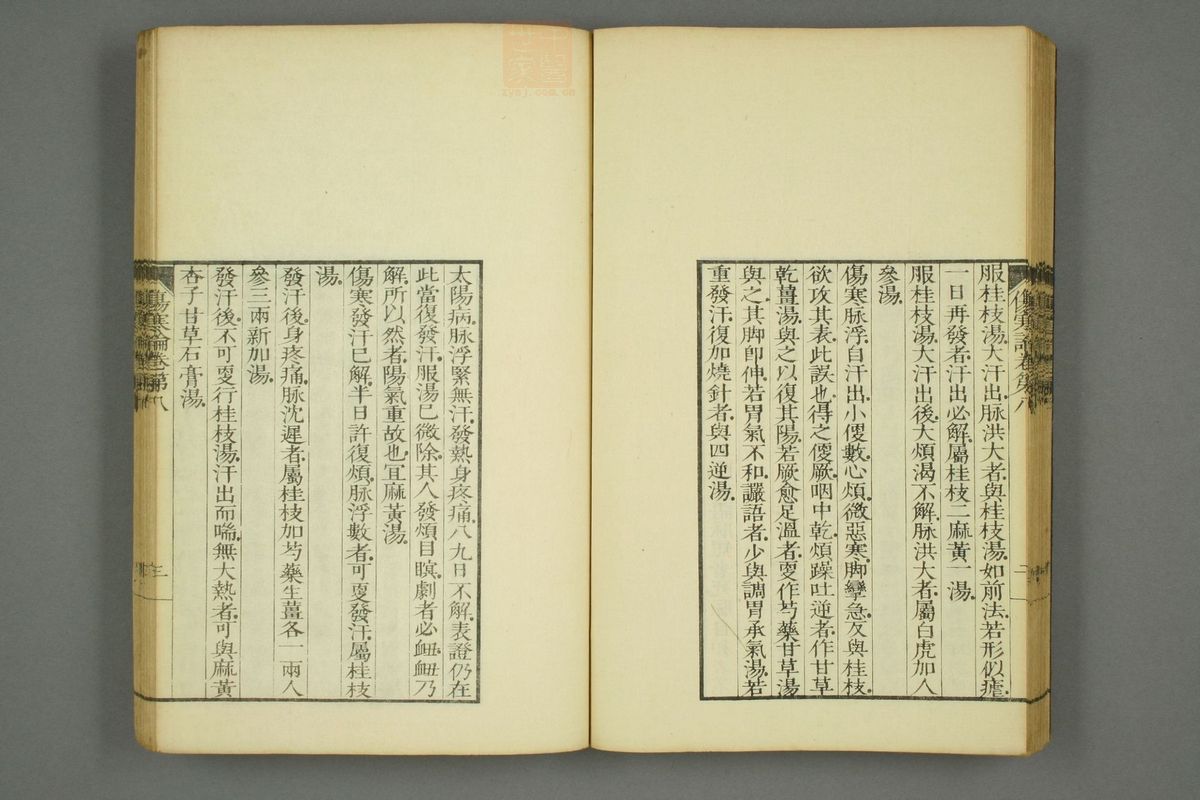 服桂枝湯大汗出脉洪大者與桂枝湯如前法若形似瘧
一日再發者汗出必解屬桂枝二麻黃一湯
服桂枝湯大汗出後大煩渴不解脉洪大者屬白虎加人
參湯
傷寒脉浮自汗出小便數心煩微惡寒脚攣急反與桂枝
欲攻其表此誤也得之便厥咽中乾煩躁吐逆者作甘草
乾薑湯與之以復其陽若厥愈足溫者更作芍藥甘草湯
與之其脚卽伸若胃氣不和讝語者少與調胃承氣湯若
重發汗復加燒針者與四逆湯
太陽病脉浮緊無汗發熱身疼痛八九日不解表證仍在
此當復發汗服湯已微除其人發煩目瞑劇者必衄衄乃
解所以然者陽氣重故也宜麻黃湯
傷寒發汗已解半日許復煩脉浮數者可更發汗屬桂枝
湯
發汗後身疼痛脉沈遲者屬桂枝加芍藥生薑各一兩人
參三兩新加湯
發汗後不可更行桂枝湯汗出而喘無大熱者可與麻黃
杏子甘草石膏湯
傷寒論卷第八
三
中醫世家
zysj.com.cn